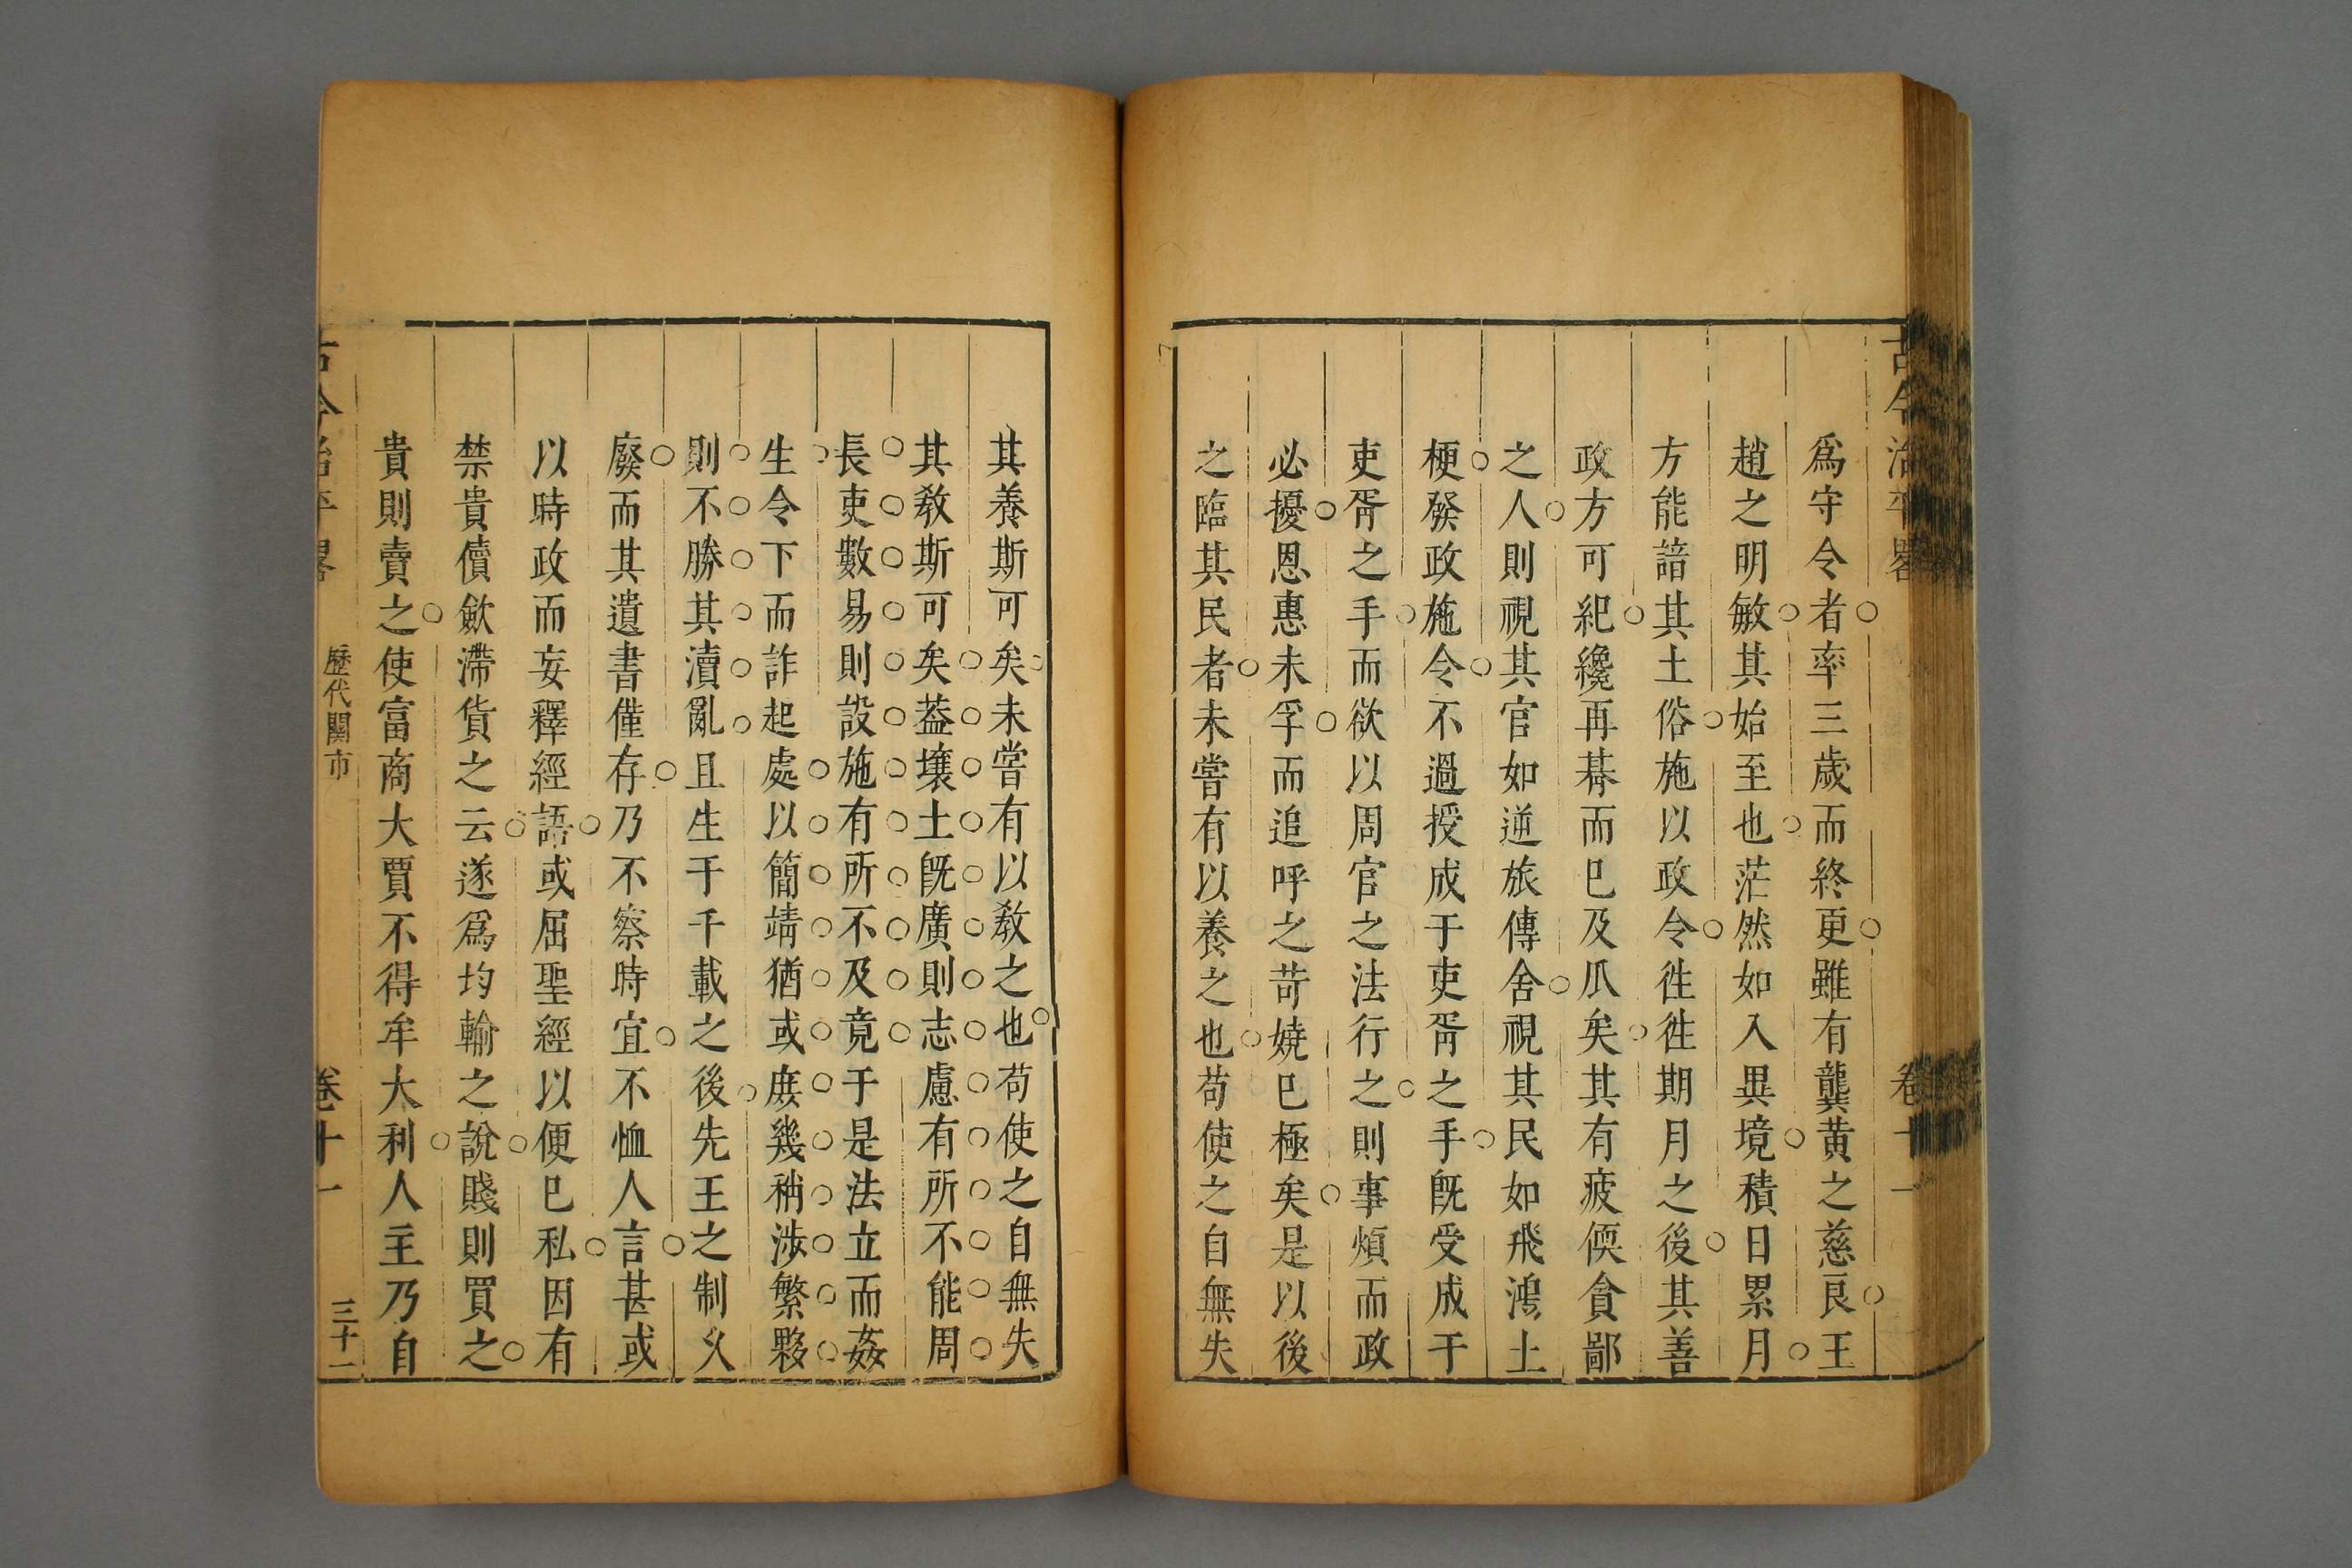 古今治平畧
卷十一
爲守令者率三歲而終更雖有龔黃之慈良王
趙之明敏其始至也茫然如入異境積日累月
方能諳其土俗施以政令徃徃期月之後其善
政方可紀纔再朞而巳及瓜矣其有疲偄貪鄙
之人則視其官如逆旅傳舍視其民如飛鴻土
梗發政施令不過授成于吏胥之手旣受成于
吏胥之手而欲以周官之法行之則事煩而政
必擾恩惠未孚而追呼之苛嬈巳極矣是以後
之臨其民者未嘗有以養之也茍使之自無失
其養斯可矣未嘗有以敎之也苟使之自無失
其敎斯可矣葢壤土旣廣則志慮有所不能周
長吏數易則設施有所不及竟于是法立而姦
生令下而詐起處以簡靖猶或庻幾稍涉繁夥
則不勝其瀆亂且生于千載之後先王之制乆
廢而其遺書僅存乃不察時宜不恤人言甚或
以時政而妄釋經語或屈聖經以便巳私因有
禁貴儥歛滯貨之云遂爲均輸之說賤則買之
貴則賣之使富商大賈不得牟大利人主乃自
古今治平畧
歷代關市
卷十一
三十二